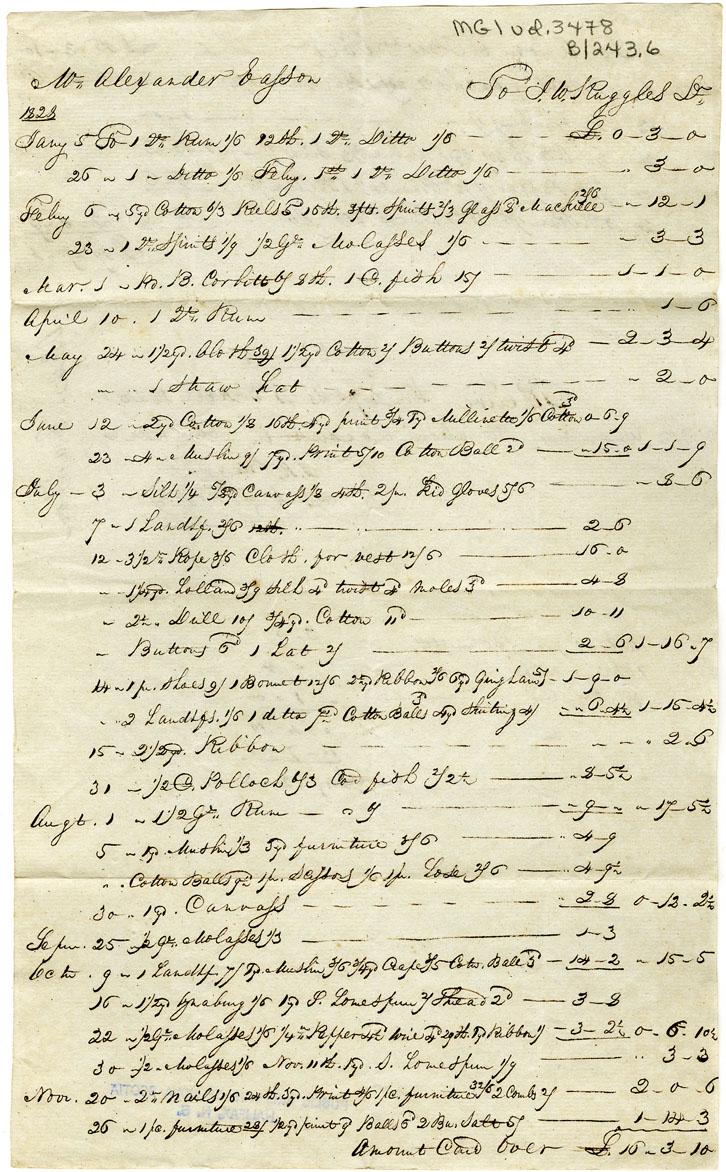 MG1 vol. 3478
B/243.6
Mr Alexander Easson To J. W. Ruggles Dr
1828
Jany 5 To 1 Qt Rum 1/6 12th. 1 Qt Ditto 1/6 £. 0-3-0
26 " 1 " Ditto 1/6 Feby. 1st 1 Qt Ditto 1/6 " 3-0
Feby 6 " 5yd Cotton 1/3 Reels 16th. Spirits 2/3 Glass 8d 2/6 - 12-1
23 " 1 Qt Spirits 1/9 1/2 Gn Molasses 1/6 " 3-3
Mar. 1 " Pd. B. Corbitt 6/ 8th. 1 C. fish 15/ 1-1-0
April 10. 1 Qt Rum " 1-6
May 24 " 1 1/2 yd. Cloth 1 1/2 yd Cotton 2/ Buttons 2/ twist 4d - 2-3-4
" " 1 Straw Hat " 2-0
June 12 - 2yd Cotton 1/8 16th 4yd print 3/4 Millinette 1/6 Cotton 3d 0-6-9
23 - 4 " Muslin 9/ 7yd. Print 5/10 Cotton Ball 2d " 15-0 1-1-9
July - 3 " Silk 1/4 Canvass 1/8 4th. 2 pr. Kid Gloves 5/6 - 8-6
7 - 1 Handkf. 2/6 12th. 2-6
12 - 3 1/2 Rope 3/6 Cloth. for vest 12/6 16-0
" Holland 3/9 silk 4d twist 4d moles 3d 4-8
" Drill 10/ 3/4 yd. Cotton 11d 10-11
" Buttons 6d 1 Hat 2/ 2-6 1-16-7
14 - 1 pr. Shoes 9/ 1 Bonnet 12/6 2yd Ribbon 2/6 6yd Gingham 5/ - 1-9-0
" 2 Handkfs. 1/6 1 ditto Cotton Balls 3d 4yd Shirting 4/ " 6-4 1/2 1-15-4 1/2
15 - 2 1/2 yd. Ribbon " 2-6
31 - 1/2 C. Pollock 6/3 Cod fish 2/2 1/2 " 8-5 1/2
Augt. 1 " 1 1/2 Gn. Rum " 9/ " 9 - " 17-5 1/2
5 " 1yd. Muslin 1/3 3yd furniture 3/6 " 4-9
" Cotton Balls 1pr. Scissors 1/6 1 pr. Hose 2/6 " 4-9 1/2
30 " 1yd. Canvass 2-8 0-12-2 1/2
Sepr. 25 - 1/2 Gn. Molasses 1/3 1-3
Octr. 9 " 1 Handkf. 7/ Muslin 3/6 3/4yd Crape 3/5 Cotn. Ball 3d - 14-2 " 15-5
16 " 1 1/2 yd Osnaburg 1/6 1yd S. Homespun 2/ thread 2d 3-8
22 " 1/2 Gn Molasses 1/6 Pepper Wire 4d 29th. 1yd Ribbon 1/ - 3-2 1/2 0-6-10 1/2
30 " 1/2 " Molasses 1/6 Nov. 11th. 1yd. S. Homespun 1/9 " 3-3
Nov. 20 " Nails 1/6 24th. 3yd. Print 1 pc. furniture 32/6 2 Combs 2/ 2-0-6
26 " 1 pc. furniture 28/ print 9d Balls 6d 2 Bu. Salt 5/ 1-14-3
Amount Card over £. 16-3-10